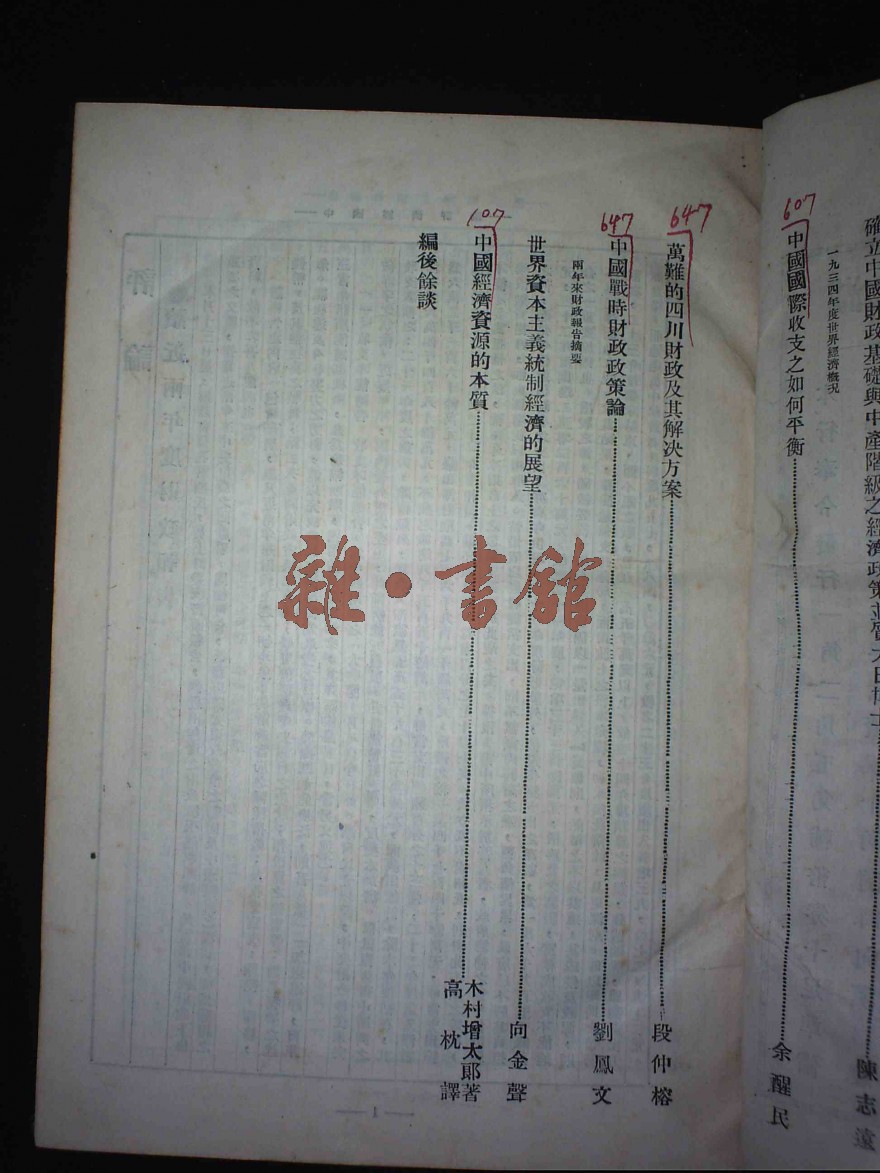 確立中國財政基礎與中產階級之經濟政策並質大日博士
陳志遠
一九三四年度世界經濟概況
607
中國國際收支之如何平衡
余醒民
647
萬難的四川財政及其解決方案
段仲榕
647
中國戰時財政政策論
劉鳳文
兩年來財政報告摘要
世界資本主義統制經濟的展望
向金聲
107
中國經濟資源的本質
木村增太郎著
高枕譯
編後餘談
1
雜·書館